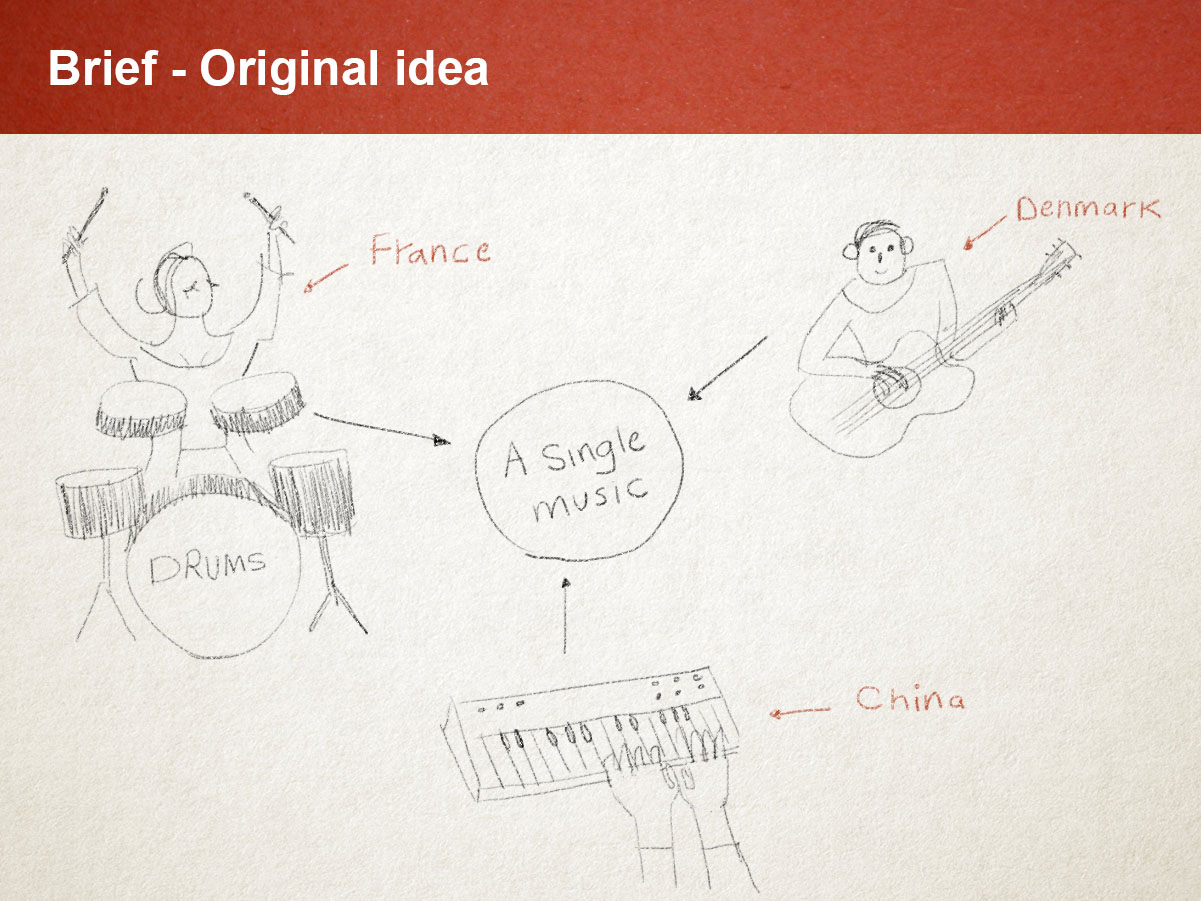 Brief - Original idea
France
Denmark
A single
music
DRUMS
China